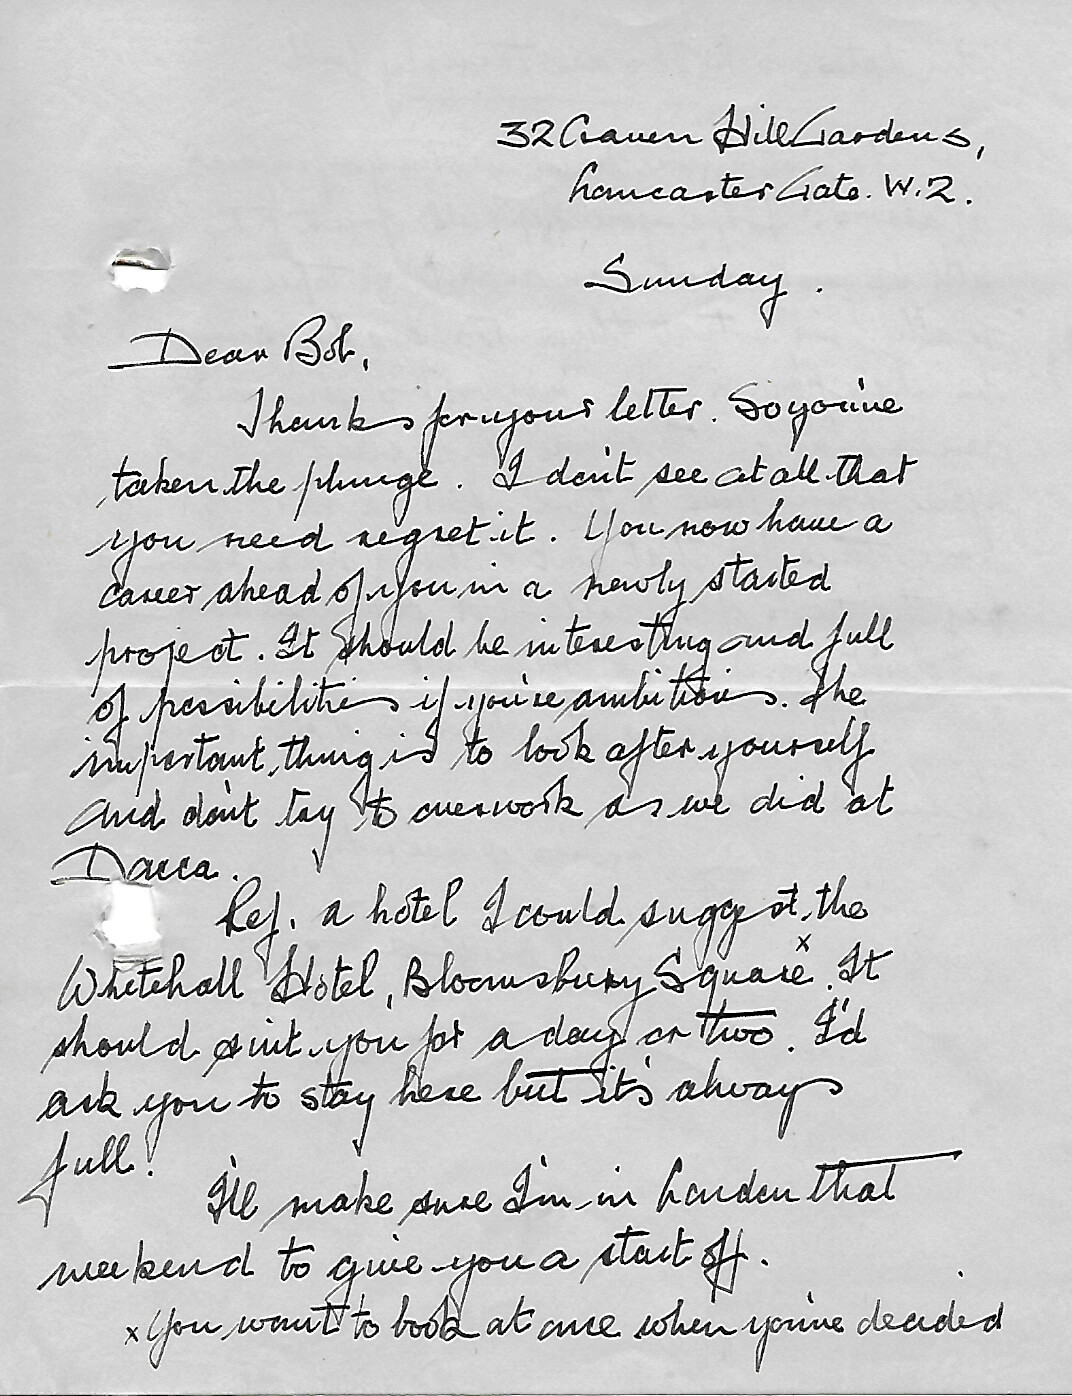 32 Craven Hill Gardens,
Lancaster Gate. W.2.
Sunday.
Dear Bob,
Thanks for your letter. So you've
taken the plunge. I don't see at all that
you need regret it. You now have a
career ahead of you in a newly started
project. It should be interesting and full
of possibilities if you're ambitious. The
important thing is to look after yourself
and don't try to overwork as we did at
Dacca.
Ref. a hotel I could suggest the
Whitehall Hotel, Bloomsbury Square x. It
should suit you for a day or two. I'd
ask you to stay here but it's always
full.
I'll make sure I'm in London that
weekend to give you a start off.
x You want to book at once when you've decided